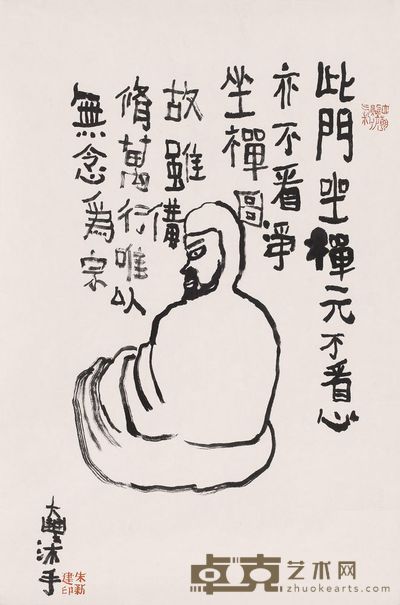 此門坐禪元不看心
亦不看淨
坐禪圖
故雖備
脩萬行唯以
無念為宗
大豐沐手
朱新建印
卓克艺术网
zhuokearts.com